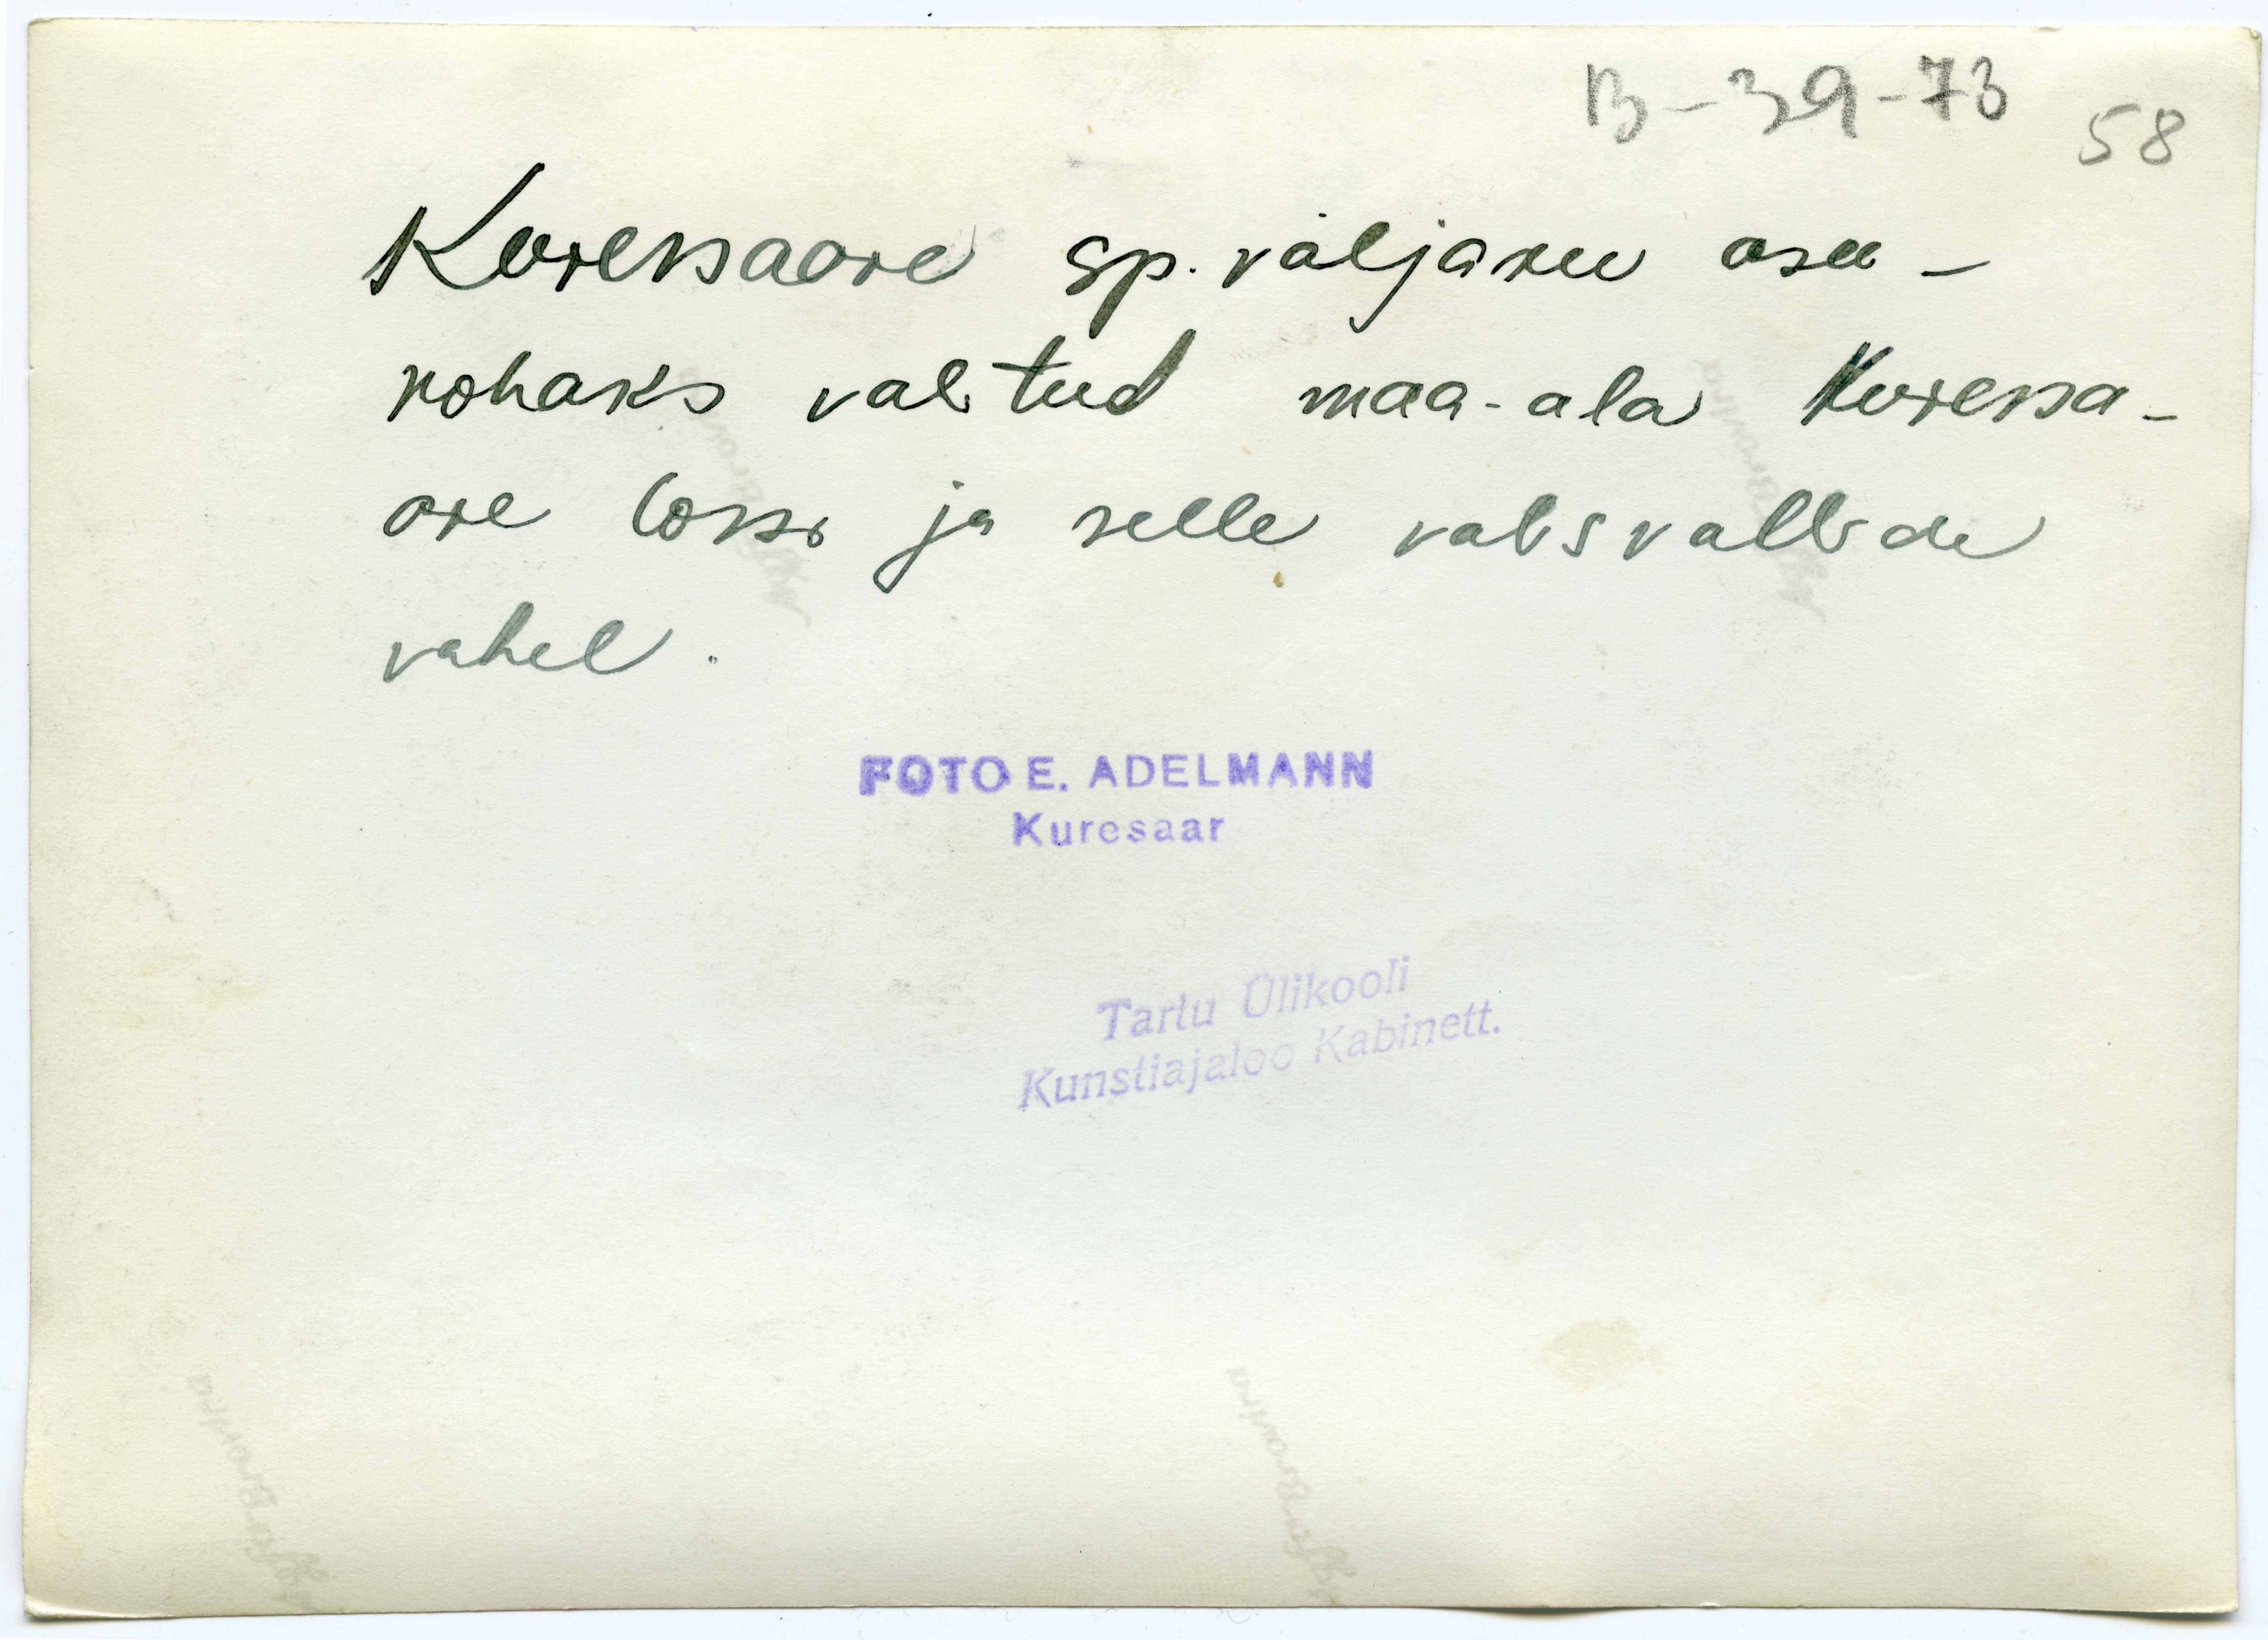 B-39-73
58
Kuressaare sp. väljaku asu-
kohaks valitud maa-ala Kuressa-
are lossi ja selle välisvallide
vahel.
FOTO E. ADELMANN
Kuresaar
Tartu Ülikooli
Kunstiajaloo Kabinett.